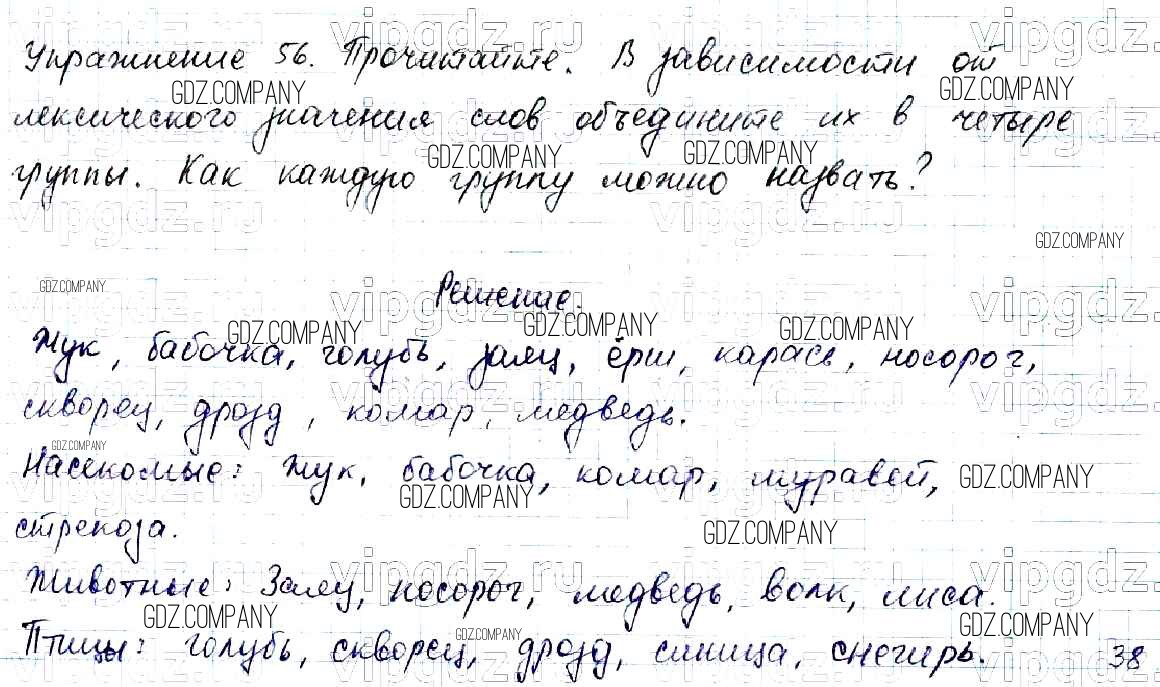 Упражнение 56. Прочитайте. В зависимости от
лексического значения слов объедините их в четыре
группы. Как каждую группу можно назвать?
Решение.
Жук, бабочка, голубь, заяц, ёрш, карась, носорог,
скворец, дрозд, комар, медведь.
Насекомые: жук, бабочка, комар, муравей,
стрекоза.
Животные: Заяц, носорог, медведь, волк, лиса.
Птицы: голубь, скворец, дрозд, синица, снегирь.
38
vipgdz.ru
GDZ.COMPANY